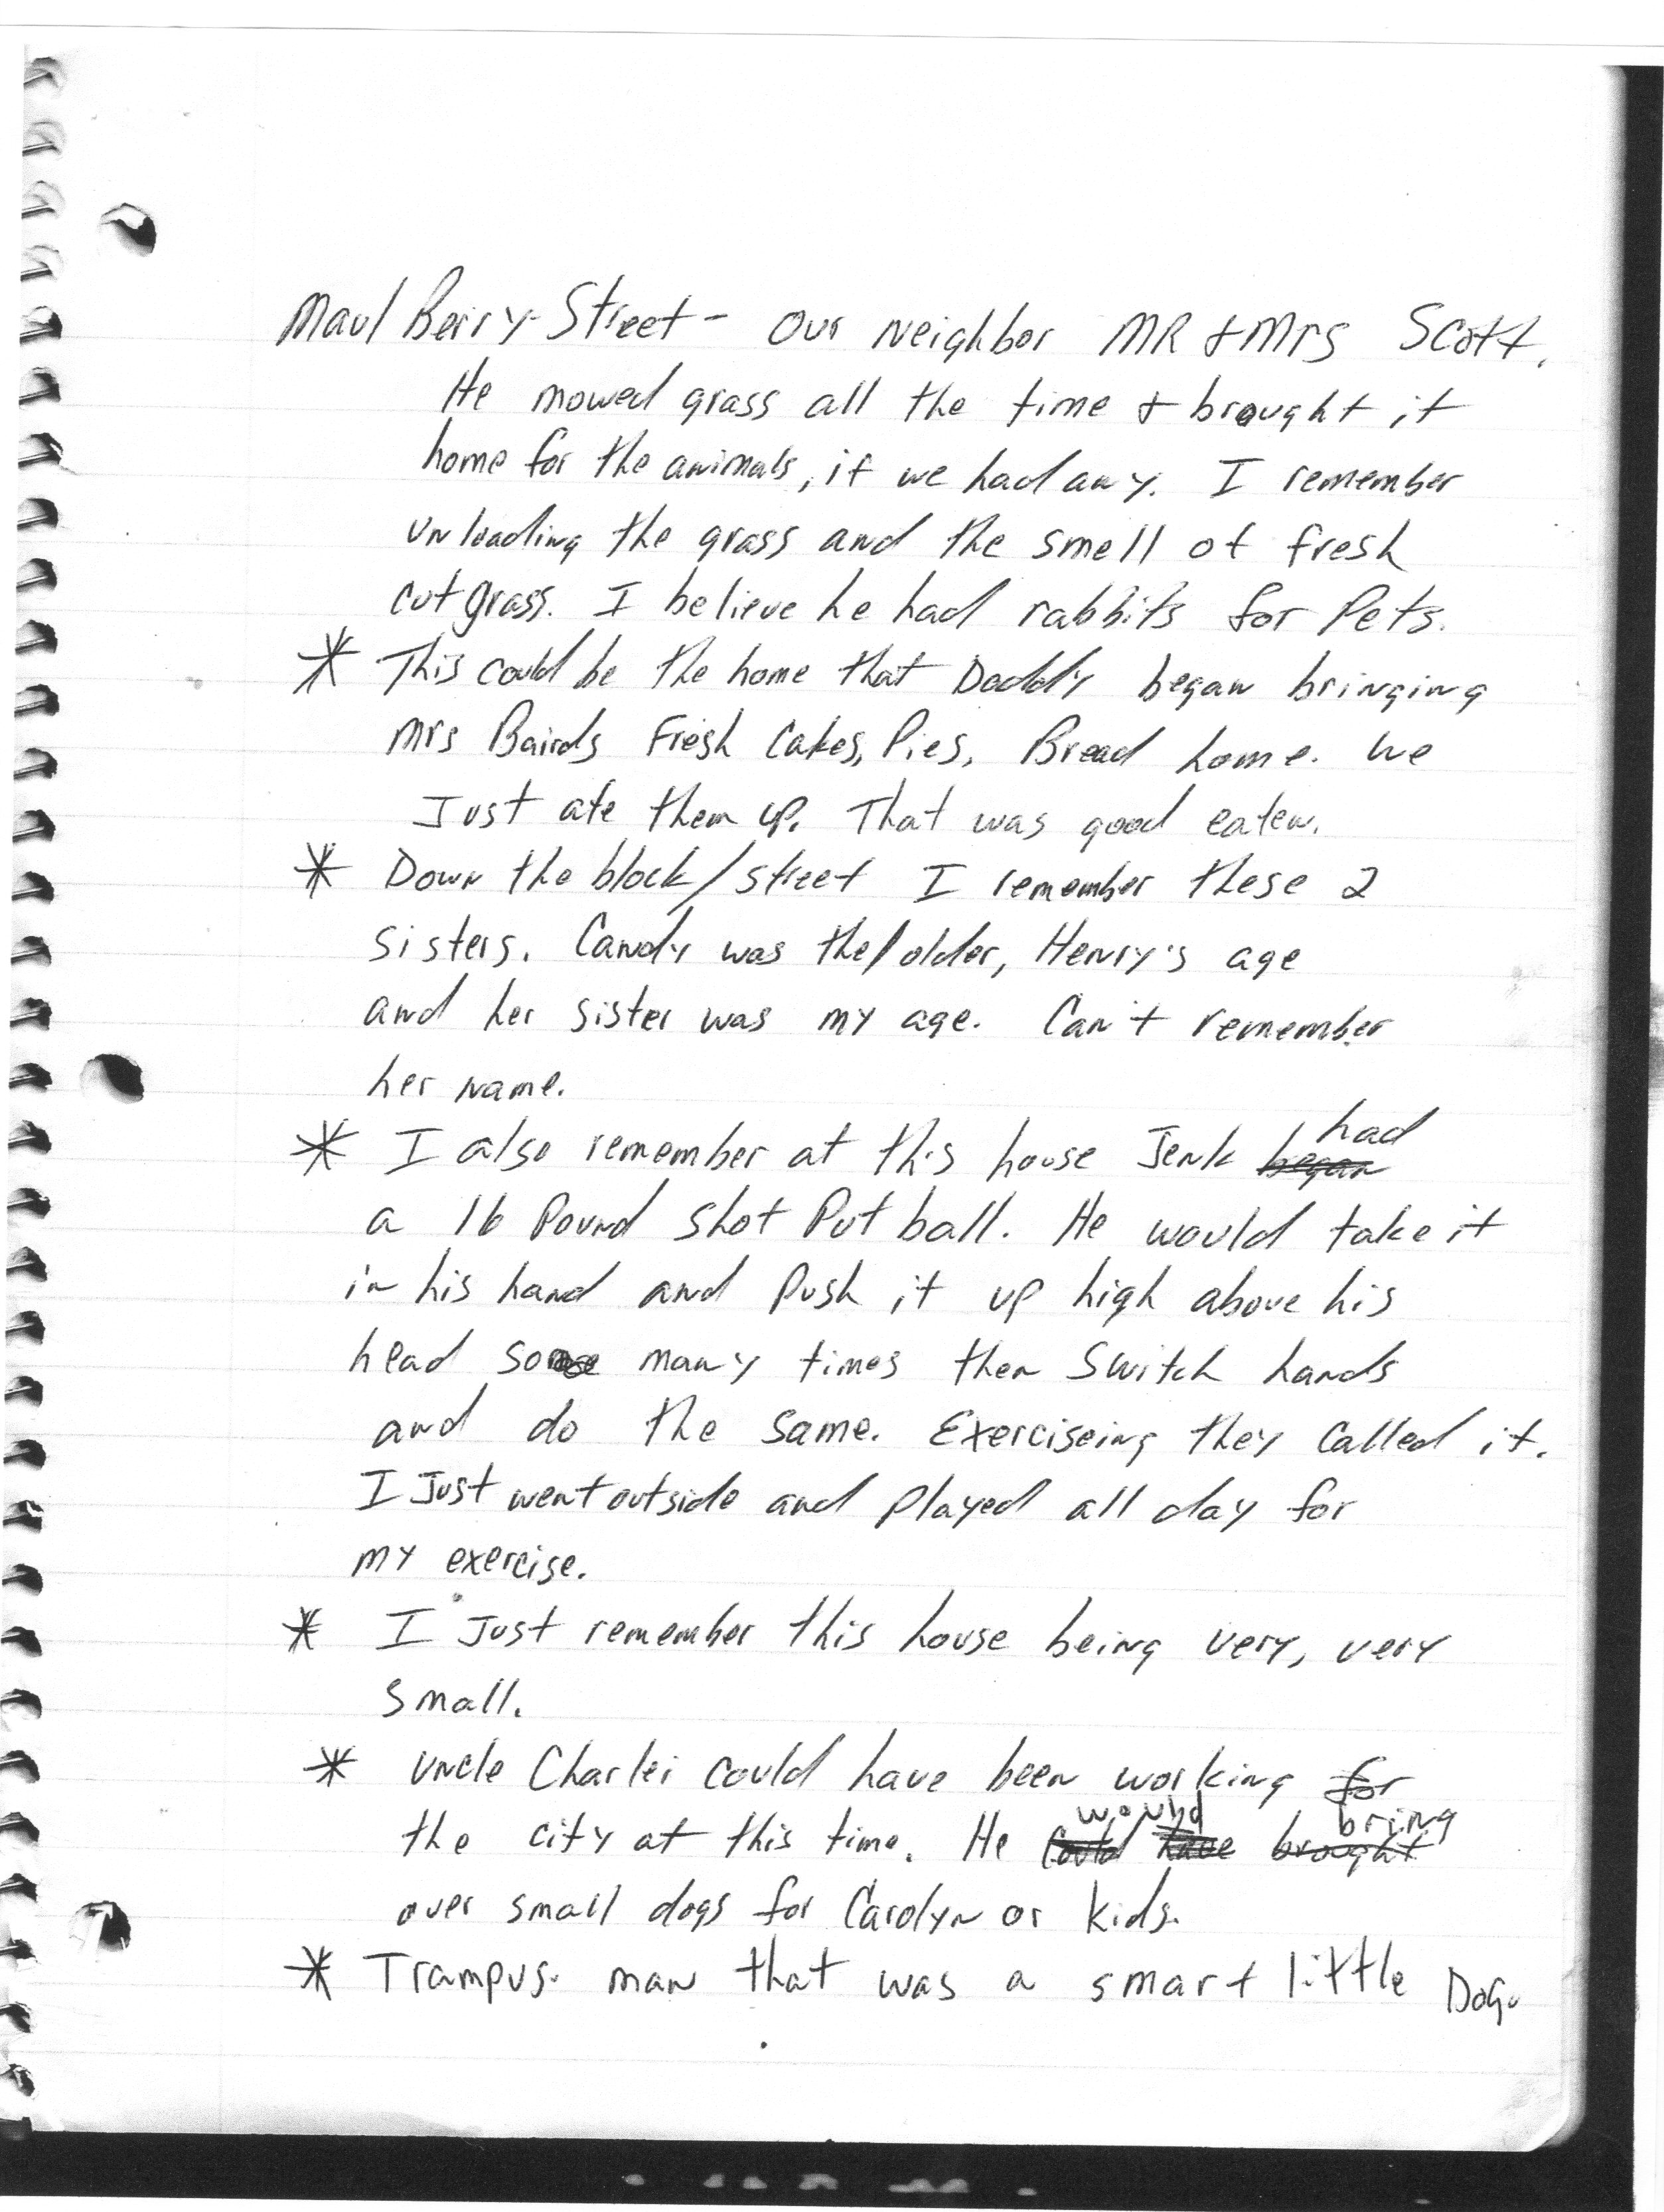 Maul Berry Street - Our Neighbor MR & Mrs Scott.
He mowed grass all the time & brought it
home for the animals, if we had any. I remember
unloading the grass and the smell of fresh
cut grass. I believe he had rabbits for Pets.
* This could be the home that Daddy began bringing
Mrs Bairds Fresh Cakes, Pies, Bread home. We
Just ate them up. That was good eaten.
* Down the block/street I remember these 2
sisters. Candy was the older, Henry's age
and her sister was my age. Can't remember
her name.
* I also remember at this house Jenk began had
a 16 Pound Shot Put ball. He would take it
in his hand and Push it up high above his
head so many times then Switch hands
and do the same. Exerciseing they called it.
I Just went outside and played all day for
my exercise.
* I Just remember this house being very, very
small.
* Uncle Charlei could have been working for
the city at this time. He could have brought would bring
over small dogs for Carolyn or kids.
* Trampus. man that was a smart little Dog.